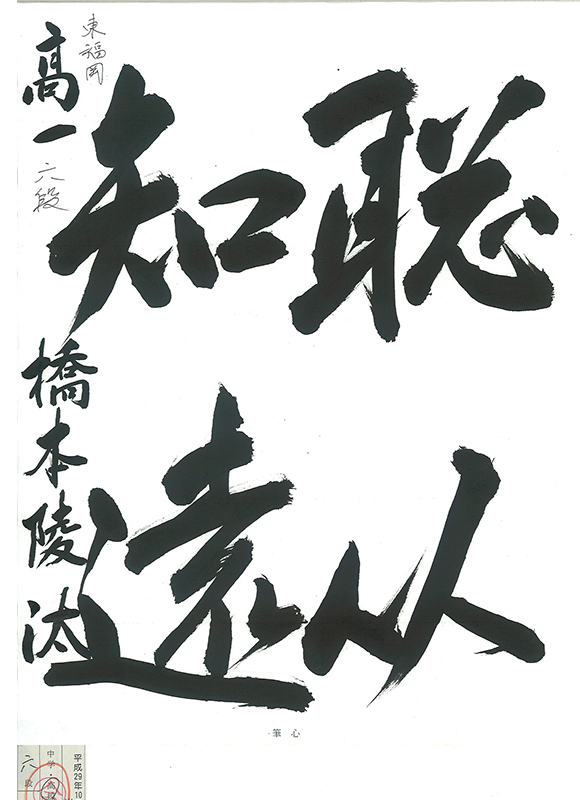 聡从
知遠
東福岡
高一 六段
橋本陵汰
心筆
平成29年10
中学・高
六段